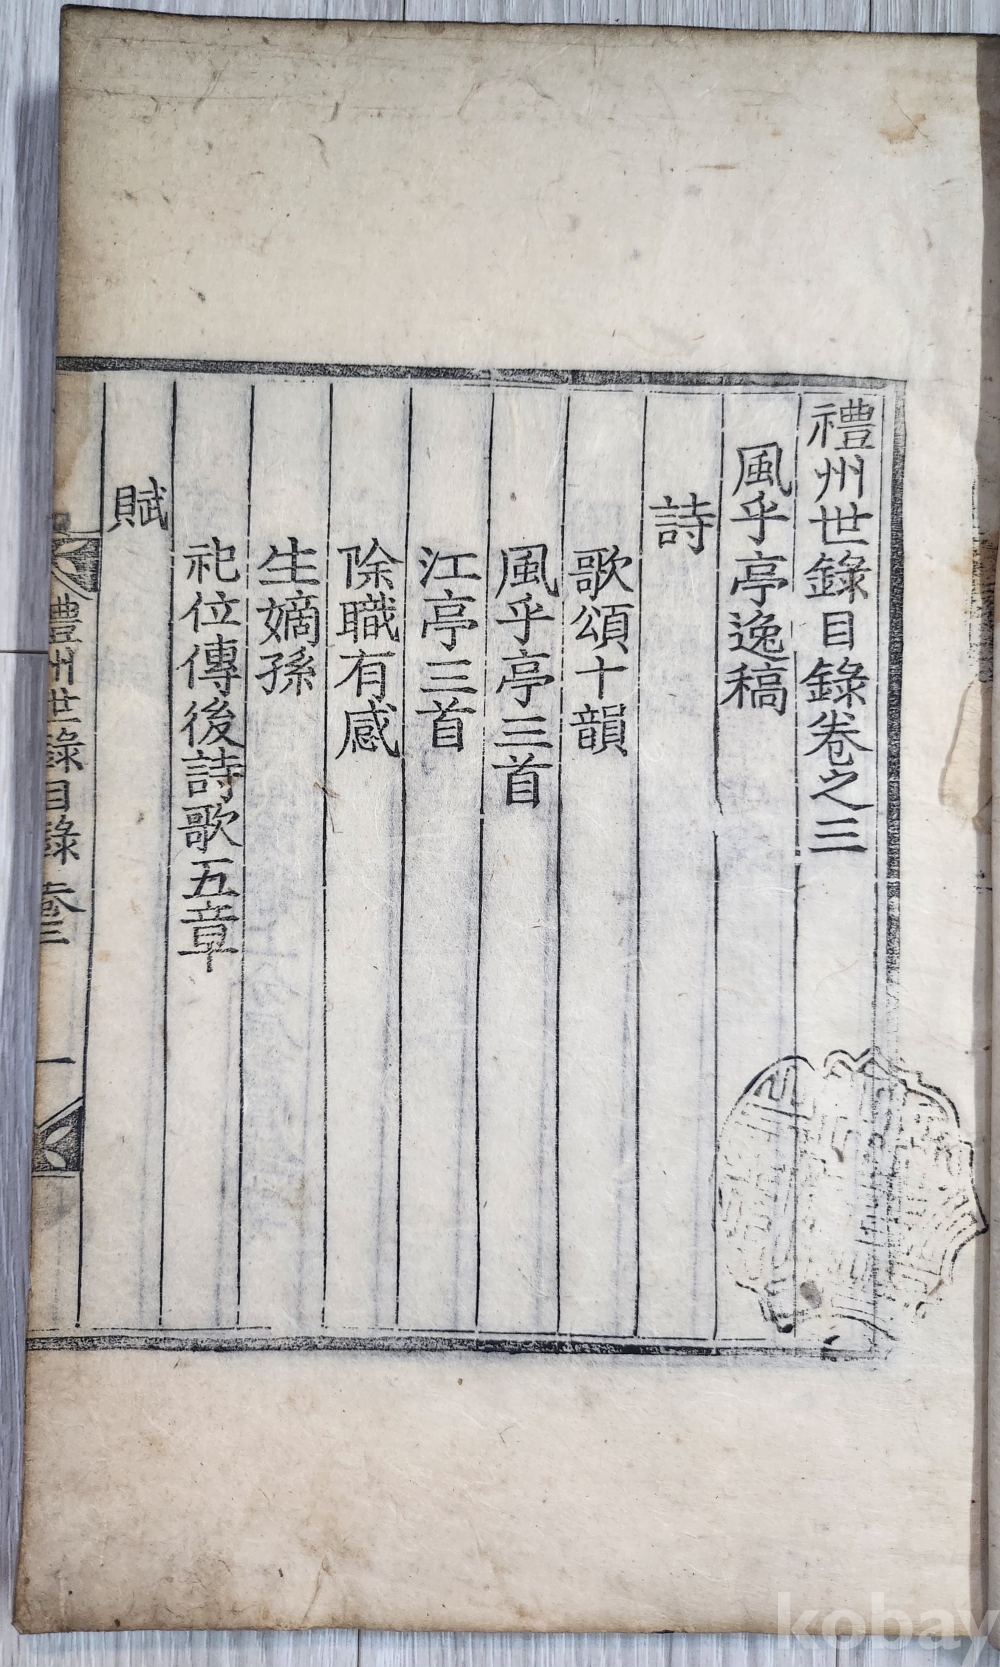 禮州世錄目錄卷之三
風乎亭逸稿
詩
歌頌十韻
風乎亭三首
江亭三首
除職有感
生嫡孫
祀位傳後詩歌五章
賦
禮州世錄目錄 卷三 一
kobay